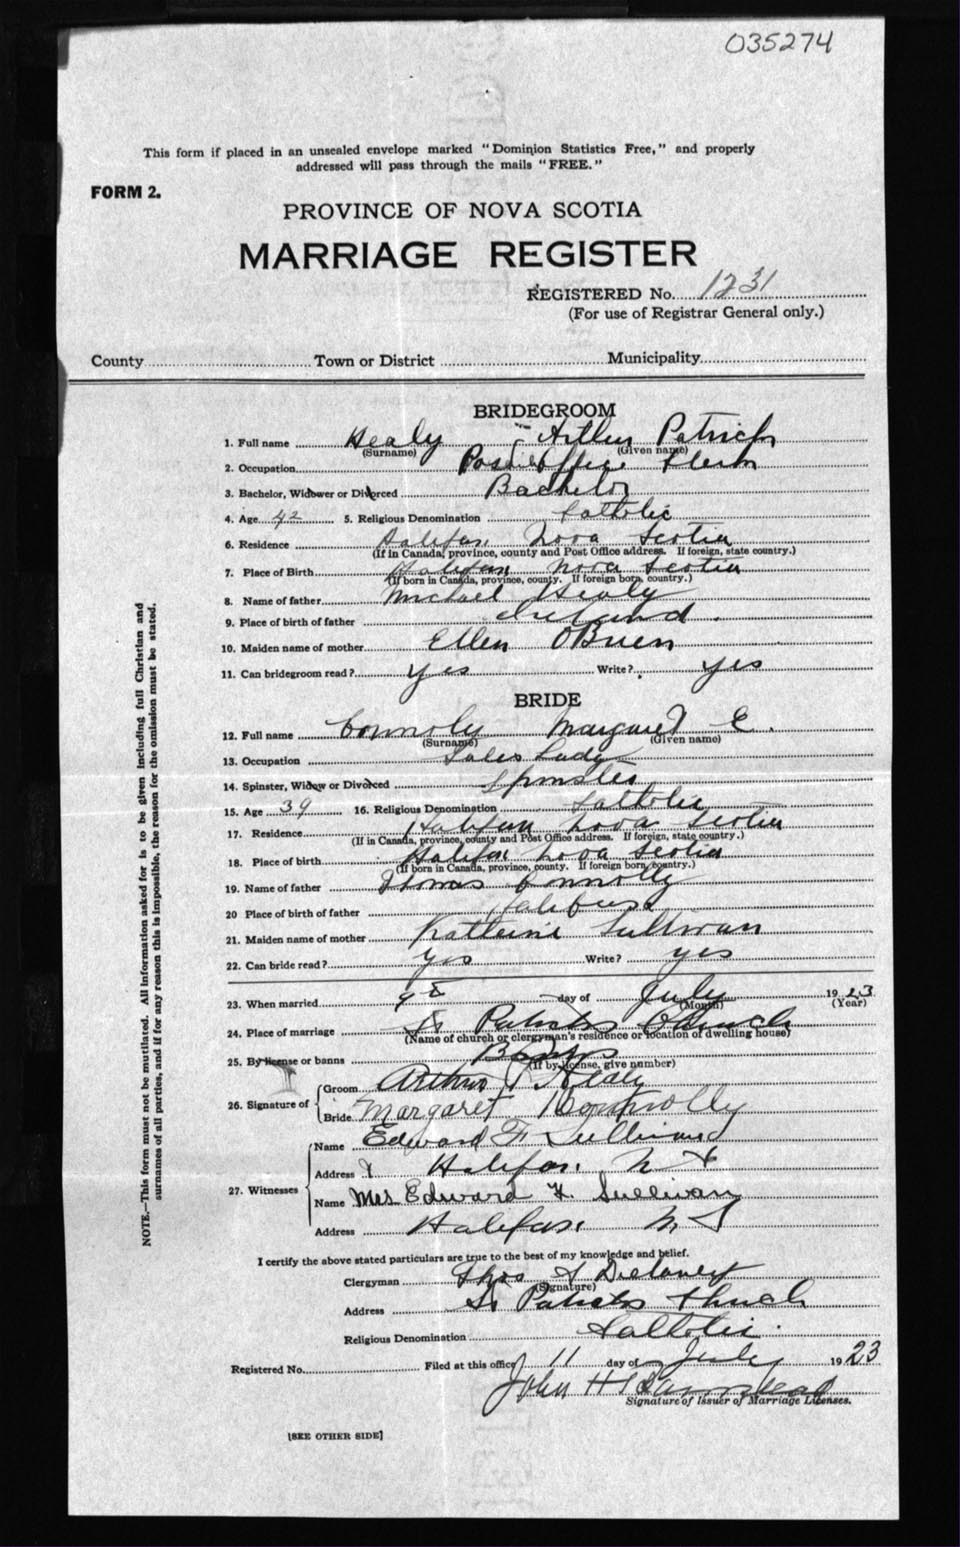 035274
This form if placed in an unsealed envelope marked "Dominion Statistics Free," and properly
addressed will pass through the mails "FREE."
FORM 2.
PROVINCE OF NOVA SCOTIA
MARRIAGE REGISTER
REGISTERED No. 1231
(For use of Registrar General only.)
County Town or District Municipality
BRIDEGROOM
1. Full name Healy Arthur Patrick
(Surname) (Given name)
2. Occupation Post Office Clerk
3. Bachelor, Widower or Divorced Bachelor
4. Age 42 5. Religious Denomination Catholic
6. Residence Halifax Nova Scotia
(If in Canada, province, county and Post Office address. If foreign, state country.)
7. Place of Birth Halifax Nova Scotia
(If born in Canada, province, county. If foreign born, country.)
8. Name of father Michael Healy
9. Place of birth of father Ireland.
10. Maiden name of mother Ellen OBrien
11. Can bridegroom read? yes Write? yes
BRIDE
12. Full name Connoly Margaret E.
(Surname) (Given name)
13. Occupation Sales Lady
14. Spinster, Widow or Divorced Spinster
15. Age 39 16. Religious Denomination Catholic
17. Residence Halifax Nova Scotia
(If in Canada, province, county and Post Office address. If foreign, state country.)
18. Place of birth Halifax Nova Scotia
(If born in Canada, province, county. If foreign born, country.)
19. Name of father Thomas Connolly
20 Place of birth of father
21. Maiden name of mother Katherine Sullivan
22. Can bride read? yes Write? yes
23. When married 9th day of July 1923
(Month) (Year)
24. Place of marriage St Patricks Church
(Name of church or clergyman's residence or location of dwelling house)
25. By license or banns Banns
(If by license, give number)
26. Signature of Groom Arthur P Healy
Bride Margaret Connolly
27. Witnesses Name Edward F. Sullivan
Address Halifax N S
Name Mrs Edward F. Sullivan
Address Halifax N S
I certify the above stated particulars are true to the best of my knowledge and belief.
Clergyman Thos Delaney
(Signature)
Address St Patricks Church
Religious Denomination Catholic.
Registered No. Filed at this office 11 day of July 1923
John H Barnstead
Signature of Issuer of Marriage Licenses.
[SEE OTHER SIDE]
NOTE.—This form must not be mutilated. All information asked for is to be given including full Christian and
surnames of all parties, and if for any reason this is impossible, the reason for the omission must be stated.